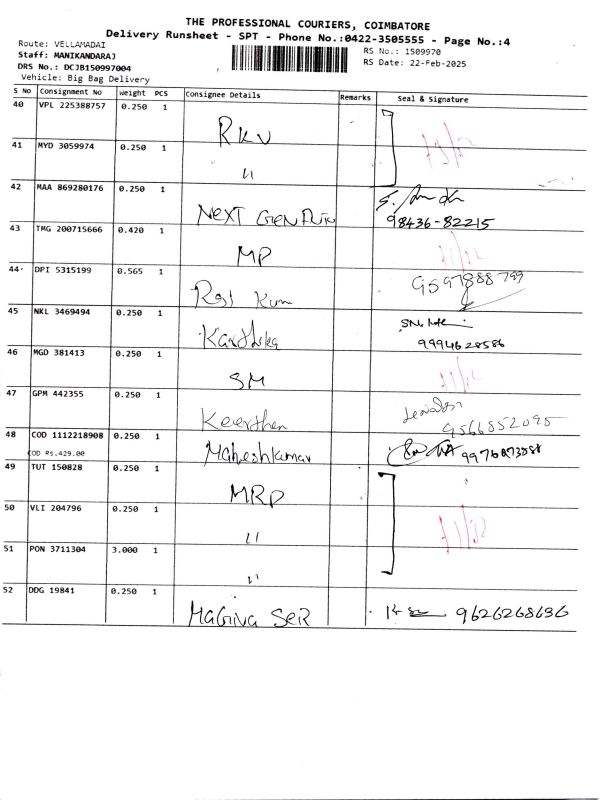 THE PROFESSIONAL COURIERS, COIMBATORE
Delivery Runsheet - SPT - Phone No.:0422-3505555 - Page No.:4
Route: VELLAMADAI
Staff: MANIKANDARAJ
RS No.: 1509970
DRS No.: DCJB150997004
RS Date: 22-Feb-2025
Vehicle: Big Bag Delivery
S No Consignment No Weight PCS Consignee Details Remarks Seal & Signature
40 VPL 225388757 0.250 1 RKV
41 MYD 3059974 0.250 1 "
42 MAA 869280176 0.250 1 NEXT Gen 98436-82215
43 TMG 200715666 0.420 1 MP
44 DPI 5315199 0.565 1 Raj Kum 9597888799
45 NKL 3469494 0.250 1 Karthika 9994628586
46 MGD 381413 0.250 1 SM
47 GPM 442355 0.250 1 Keerthen 9566852095
48 COD 1112218908 0.250 1 Maheshkumar 9976873588
COD Rs.429.00
49 TUT 150828 0.250 1 MRP
50 VLI 204796 0.250 1 "
51 PON 3711304 3.000 1 "
52 DDG 19841 0.250 1 SER 9626268636